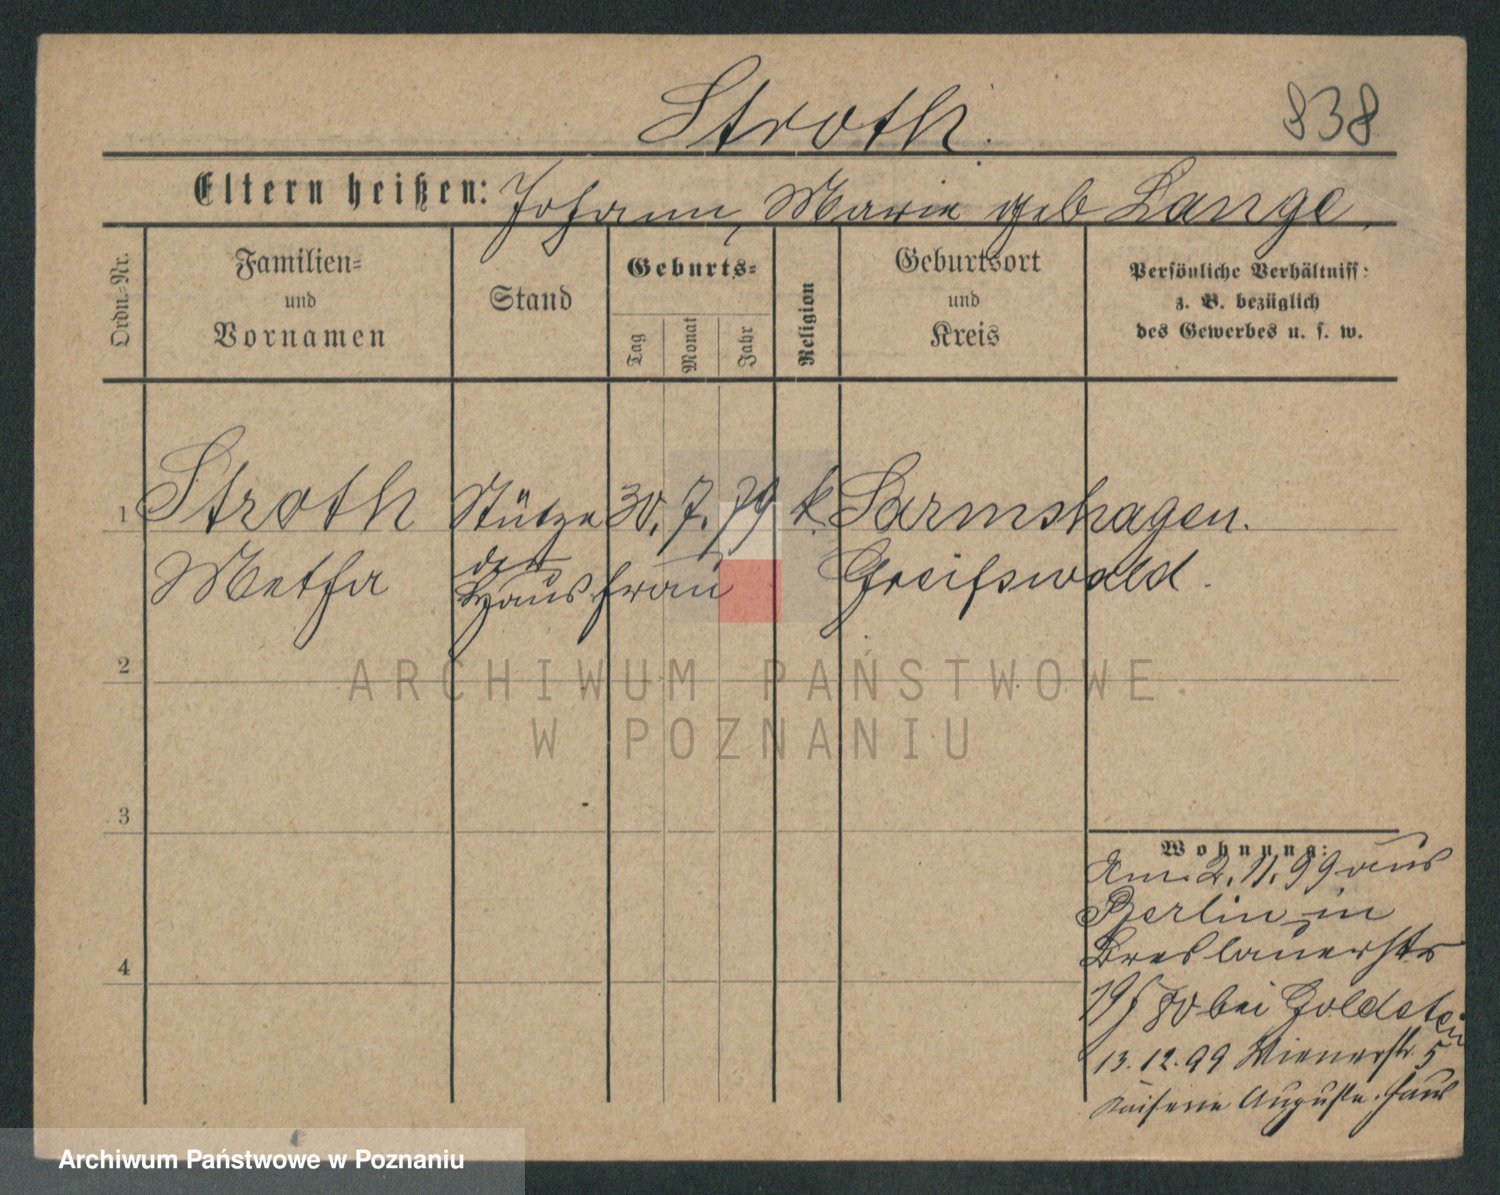 Stroth.
838
Eltern heißen: Johann, Marie geb Lange,
Ordn.-Nr.
Familien-
und
Vornamen
Stand
Geburts-
Tag
Monat
Jahr
Religion
Geburtsort
und
Kreis
Persönliche Verhältniss:
z. B. bezüglich
des Gewerbes u. s. w.
1 Stroth Stütze 30. 7. 79 k. Sarmshagen.
Metha der Hausfrau Greifswald.
2
ARCHIWUM PAŃSTWOWE
W POZNANIU
3
4
Wohnung:
Am 2. 11. 99 aus
Berlin in
Breslauerstr
bei Goldstein
13. 12. 99 Wienerstr. 5
Kaiserin Augusta. Haus
Archiwum Państwowe w Poznaniu